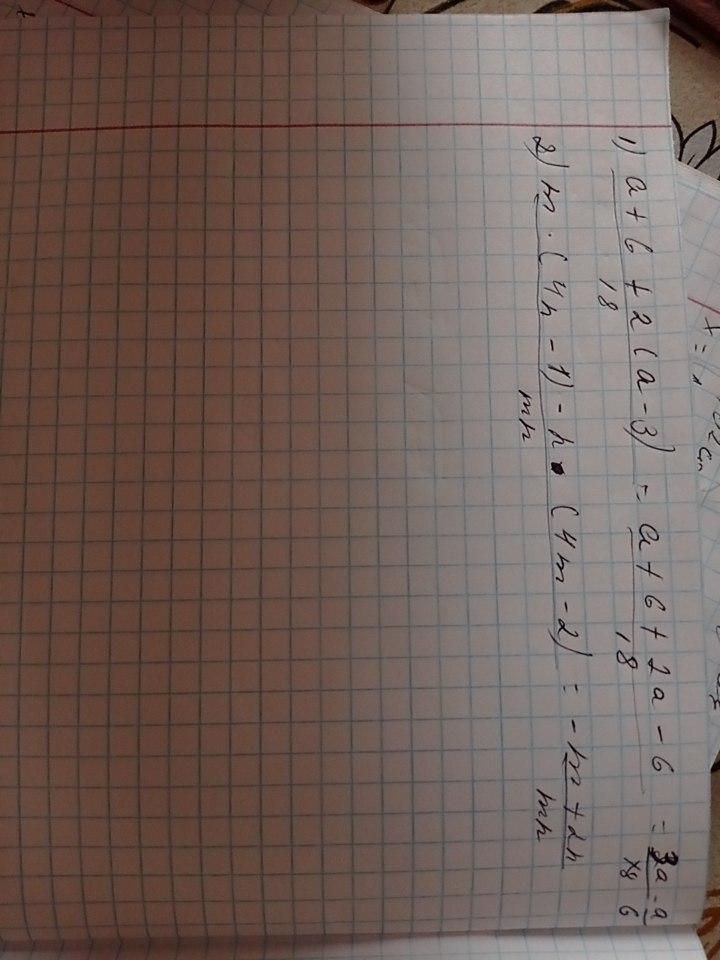 1) a + 6 + 2(a - 3) / 18 = a + 6 + 2a - 6 / 18 = 3a / 18 = a / 6
2) m · (4n - 1) - n · (4m - 2) / mn = -m + 2n / mn